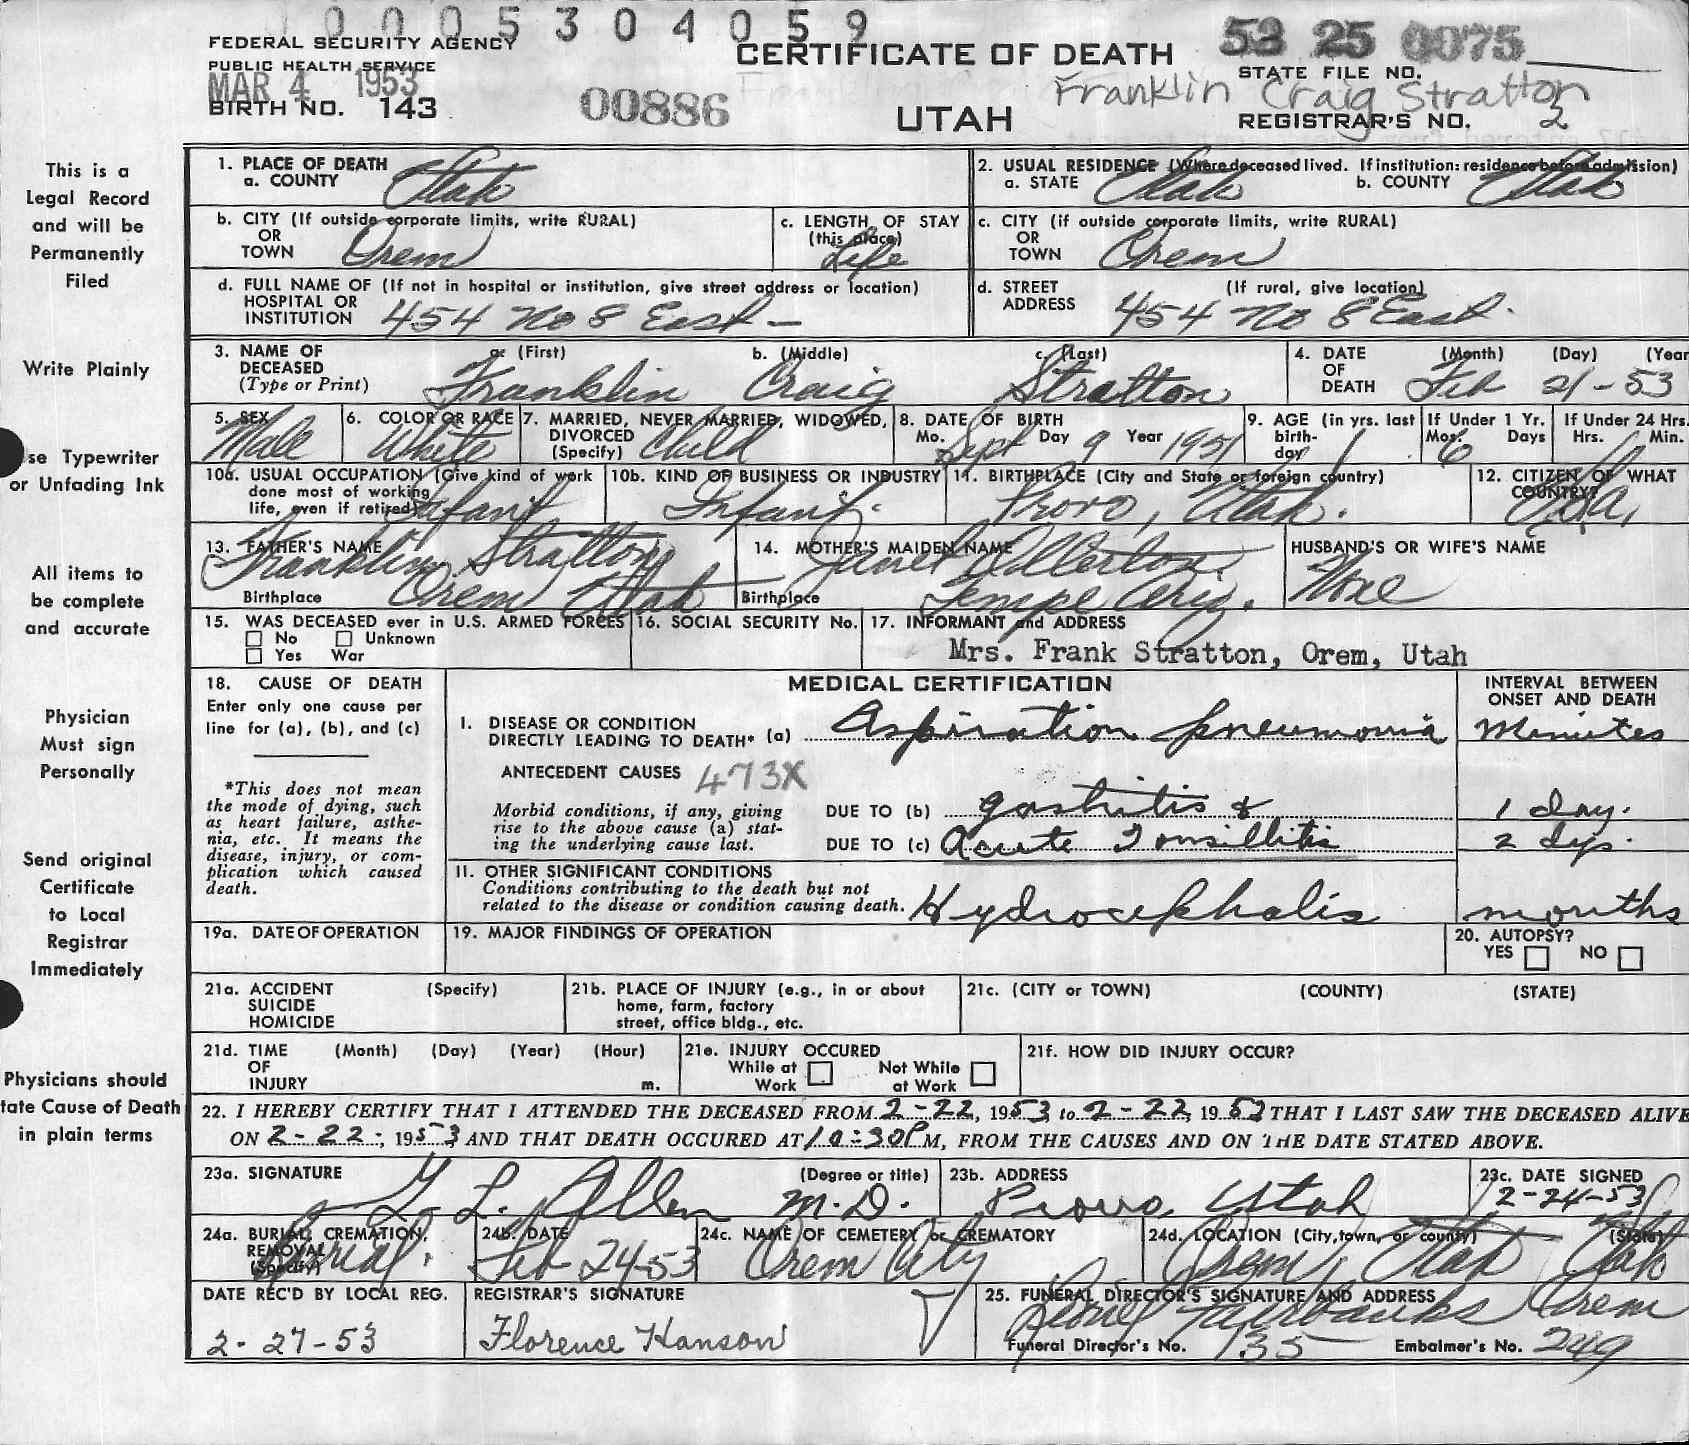 0005304059
FEDERAL SECURITY AGENCY
PUBLIC HEALTH SERVICE
MAR 4 1953
BIRTH NO. 143
00886
CERTIFICATE OF DEATH
UTAH
53 25 0075
STATE FILE NO.
Franklin Craig Stratton
REGISTRAR'S NO. 2
This is a
Legal Record
and will be
Permanently
Filed
Write Plainly
se Typewriter
or Unfading Ink
All items to
be complete
and accurate
Physician
Must sign
Personally
Send original
Certificate
to Local
Registrar
Immediately
Physicians should
tate Cause of Death
in plain terms
1. PLACE OF DEATH
a. COUNTY Utah
2. USUAL RESIDENCE (Where deceased lived. If institution: residence before admission)
a. STATE Utah b. COUNTY Utah
b. CITY (If outside corporate limits, write RURAL)
OR
TOWN Orem
c. LENGTH OF STAY
(this place)
Life
c. CITY (if outside corporate limits, write RURAL)
OR
TOWN Orem
d. FULL NAME OF (If not in hospital or institution, give street address or location)
HOSPITAL OR
INSTITUTION 454 No 8 East -
d. STREET (If rural, give location)
ADDRESS 454 No 8 East.
3. NAME OF DECEASED (Type or Print)
a. (First) b. (Middle) c. (Last)
Franklin Craig Stratton
4. DATE OF DEATH (Month) (Day) (Year
Feb 21-53
5. SEX
Male
6. COLOR OR RACE
White
7. MARRIED, NEVER MARRIED, WIDOWED,
DIVORCED
(Specify) Child
8. DATE OF BIRTH
Mo. Sept Day 9 Year 1951
9. AGE (in yrs. last
birth-
day) 1
If Under 1 Yr.
Mos. 6 Days
If Under 24 Hrs.
Hrs. Min.
10a. USUAL OCCUPATION (Give kind of work
done most of working
life, even if retired) Infant
10b. KIND OF BUSINESS OR INDUSTRY
Infant.
11. BIRTHPLACE (City and State or foreign country)
Provo, Utah.
12. CITIZEN OF WHAT
COUNTRY?
13. FATHER'S NAME
Franklin Stratton
Birthplace Orem Utah
14. MOTHER'S MAIDEN NAME
Janet
Birthplace Tempe Ariz.
HUSBAND'S OR WIFE'S NAME
None
15. WAS DECEASED ever in U.S. ARMED FORCES
No Unknown
Yes War
16. SOCIAL SECURITY No.
17. INFORMANT and ADDRESS
Mrs. Frank Stratton, Orem, Utah
18. CAUSE OF DEATH
Enter only one cause per
line for (a), (b), and (c)
*This does not mean
the mode of dying, such
as heart failure, asthe-
nia, etc. It means the
disease, injury, or com-
plication which caused
death.
MEDICAL CERTIFICATION
INTERVAL BETWEEN
ONSET AND DEATH
I. DISEASE OR CONDITION
DIRECTLY LEADING TO DEATH* (a) Aspiration pneumonia Minutes
ANTECEDENT CAUSES 473X
Morbid conditions, if any, giving
rise to the above cause (a) stat-
ing the underlying cause last.
DUE TO (b) gastritis & 1 day.
DUE TO (c) Acute Tonsillitis 2 dys.
11. OTHER SIGNIFICANT CONDITIONS
Conditions contributing to the death but not
related to the disease or condition causing death. Hydrocephalis months
19a. DATE OF OPERATION
19. MAJOR FINDINGS OF OPERATION
20. AUTOPSY?
YES NO
21a. ACCIDENT (Specify)
SUICIDE
HOMICIDE
21b. PLACE OF INJURY (e.g., in or about
home, farm, factory
street, office bldg., etc.
21c. (CITY or TOWN) (COUNTY) (STATE)
21d. TIME (Month) (Day) (Year) (Hour)
OF
INJURY m.
21e. INJURY OCCURED
While at Work
Not While at Work
21f. HOW DID INJURY OCCUR?
22. I HEREBY CERTIFY THAT I ATTENDED THE DECEASED FROM 2-22, 1953 to 2-22, 1953 THAT I LAST SAW THE DECEASED ALIVE
ON 2-22-, 1953 AND THAT DEATH OCCURED AT 10:30P M, FROM THE CAUSES AND ON THE DATE STATED ABOVE.
23a. SIGNATURE (Degree or title)
L. Allen M.D.
23b. ADDRESS
Provo, Utah
23c. DATE SIGNED
2-24-53
24a. BURIAL, CREMATION,
REMOVAL
(Specify)
Burial.
24b. DATE
Feb 24-53
24c. NAME OF CEMETERY or CREMATORY
Orem City
24d. LOCATION (City, town, or county) (State)
Orem, Utah Utah
DATE REC'D BY LOCAL REG.
2-27-53
REGISTRAR'S SIGNATURE
Florence Hanson
25. FUNERAL DIRECTOR'S SIGNATURE AND ADDRESS
Fairbanks Orem
Funeral Director's No. 135 Embalmer's No. 249